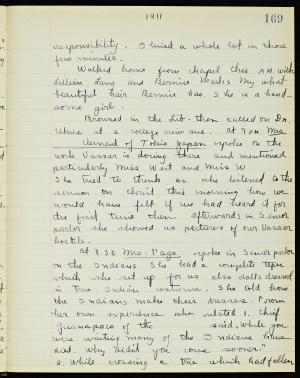 1911
169
responsibility. I lived a whole lot in those
few minutes.
Walked home from chapel this A.M. with
Lang and Bernice Marks. My what
beautiful hair Bernice has. She is a hand-
some girl.
Browsed in the lib. then called on Dr.
at a college view ave. At 7 P.M. Mrs
of Tokio Japan spoke on the
work Vassar is doing there and mentioned
particularly Miss West and Miss W
She tried to think as she listened to the
sermon on Christ this morning how we
would have felt if we had heard it for
the first time then. Afterwards in Senior
parlor she showed us pictures of our Vassar
hostile.
At 8:30 Mrs. Page spoke in Senior parlor
on the Indians. She had a complete
which she set up for us also dolls dressed
in true Indian costume. She told how
the Indians make their dresses. From
her own experience she related 1. Chief
of the said, while you
were waiting many of the Indians have
died. Why didn't you come sooner."
2. While crossing a tree which had fallen